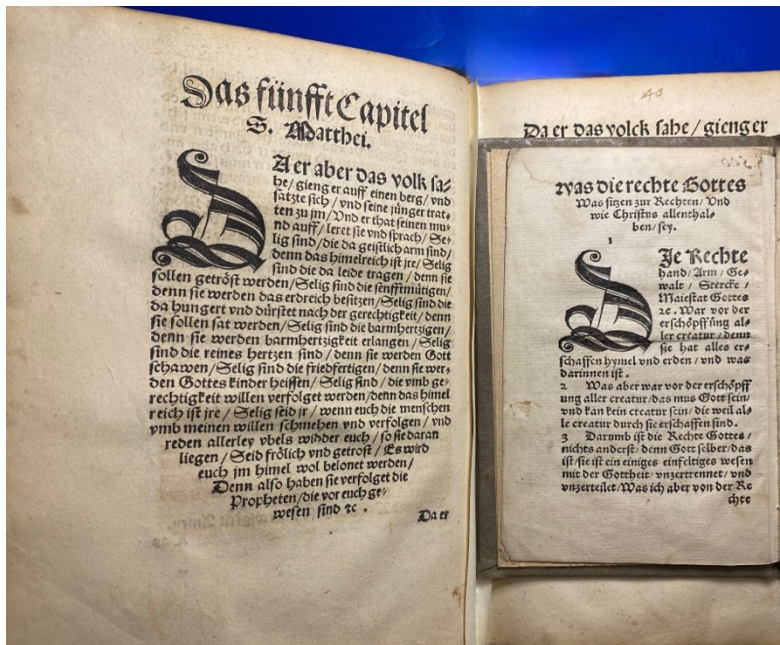 Das fünfft Capitel
S. Matthei.
DA er aber das volk sa⸗
he/ gieng er auff einen berg/ vnd
satzte sich / vnd seine jünger trat⸗
ten zu jm/ Vnd er that seinen mu⸗
nd auff/ leret sie vnd sprach/ Se⸗
lig sind/die da geistlich arm sind/
denn das himelreich ist jre/ Selig
sind die da leide tragen / denn sie
sollen getröst werden/Selig sind die senfftmütigen/
denn sie werden das erdreich besitzen/Selig sind die
da hungert vnd dürstet nach der gerechtigkeit / denn
sie sollen sat werden /Selig sind die barmhertzigen/
denn sie werden barmhertzigkeit erlangen /Selig
sind die reines hertzen sind / denn sie werden Gott
schawen / Selig sind die friedfertigen/ denn sie wer⸗
den Gottes kinder heissen/ Selig sind / die vmb ge⸗
rechtigkeit willen verfolget werden/denn das himel
reich ist jre / Selig seid jr / wenn euch die menschen
vmb meinen willen schmehen vnd verfolgen / vnd
reden allerley vbels widder euch / so sie daran
liegen / Seid frölich vnd getrost / Es wird
euch jm himel wol belonet werden/
Denn also haben sie verfolget die
Propheten/die vor euch ge⸗
wesen sind ꝛc .
Da er
40
Da er das volck sahe / gieng er
Was die rechte Gottes
Was sitzen zur Rechten/ Vnd
wie Christus allenthal⸗
ben/ sey.
1
DIe Rechte
hand/ Arm / Ge⸗
walt / Stercke /
Maiestat Gottes
ꝛc . War vor der
erschöpffung al⸗
ler creatur / denn
sie hat alles er⸗
schaffen hymel vnd erden / vnd was
darinnen ist .
2 Was aber war vor der erschöpff
ung aller creatur/das mus Gott sein/
vnd kan kein creatur sein/ die weil al⸗
le creatur durch sie erschaffen sind.
3 Darumb ist die Rechte Gottes /
nichts anderst/ denn Gott selber/das
ist/sie ist ein einiges einfeltiges wesen
mit der Gottheit / vnzertrennet/ vnd
vnzerteilet/Was ich aber von der Re
chte